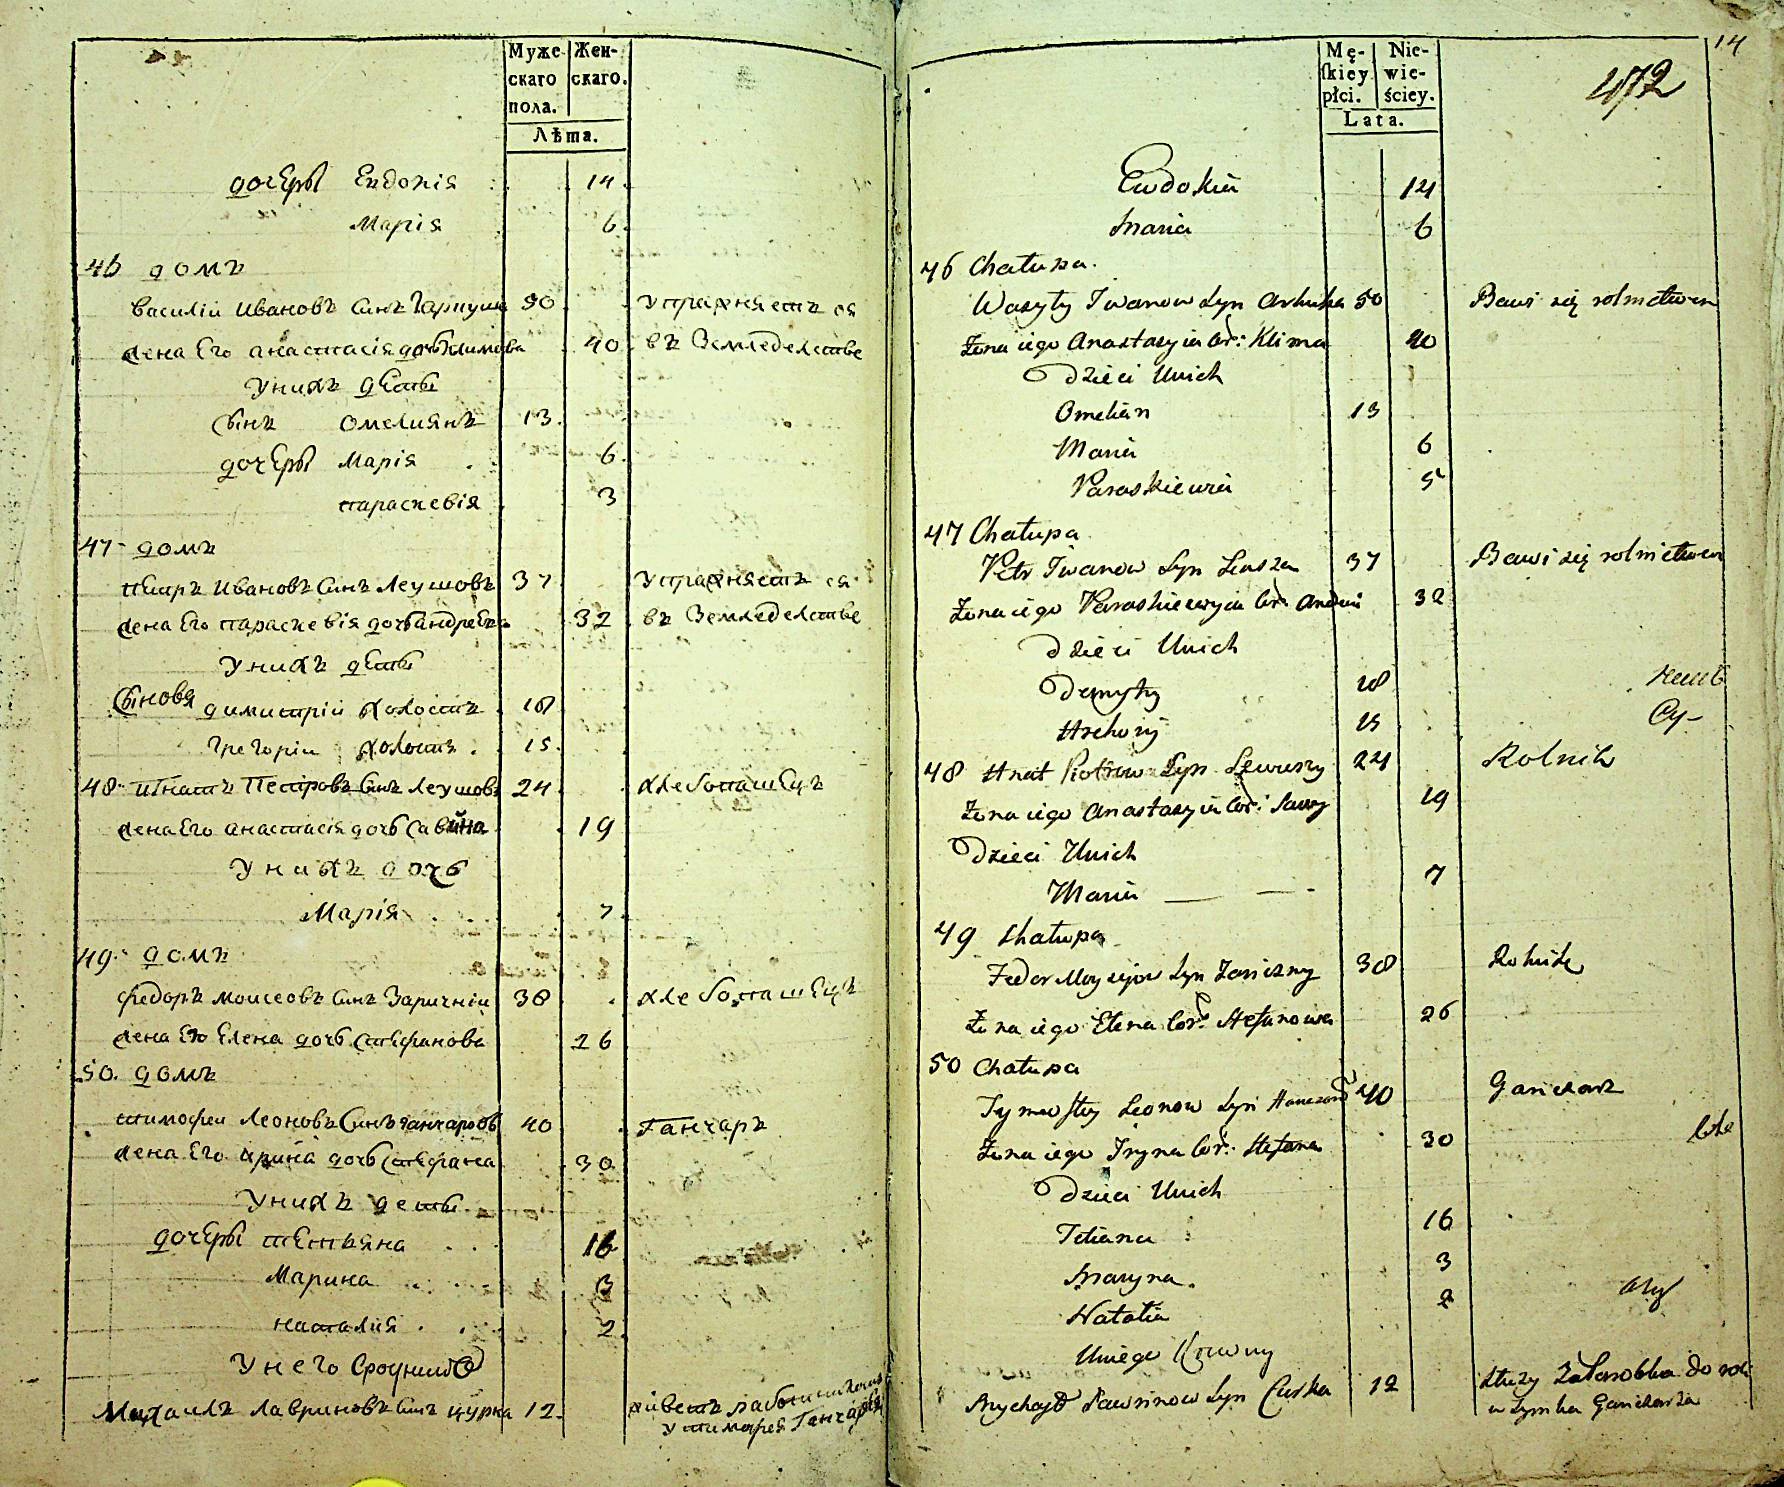 Муже- Жен-
скаго скаго.
пола.
Лѣта.
дочеры Евдокія 14
Марія 6
46 домъ
василій Ивановъ Синъ 50 упражняетъ ся
жена Его анастасія дочь Климова 40 въ Земледелстве
Унихъ дѣты
Сынъ Омелиянъ 13
дочеры Марія 6
параскевія 3
47 домъ
петръ Ивановъ Синъ Леушовъ 37 упражняетъ ся
жена Его параскевія дочь андреева 32 въ Земледелстве
Унихъ дѣты
Сыновя димитрій холостъ 18
Григоріи холостъ 15
48 игнатъ Петровъ Синъ Леушовъ 24 хлебопашецъ
жена Его анастасія дочь Савина 19
Унихъ дочь
Марія 7
49 домъ
федоръ моисеовъ Синъ Заричніи 38 хлебопашецъ
жена Его Елена дочь Стефанова 26
50. домъ
тимофеи Леоновъ Синъ ганчаровъ 40 Ганчаръ
жена Его ирина дочь Стефана 30
Унихъ деты
дочеры тетьяна 16
Марина 3
наталия 2
Унего Сродний
Михаилъ Лавриновъ Синъ цурка 12 живетъ
у тимофея Ганчара
14
472
Mę- Nie-
skiey wie-
płci. ściey.
Lata.
Ewdokia 14
Maria 6
46 Chałupa.
Wasyly Iwanow Syn 50 Bawi się rolnictwem
Żona iego Anastazyia Cor: Klima 40
Dzieci Unich
Omelian 13
Maria 6
Paraskiewia 5
47 Chałupa
Petr Iwanow Syn Leusza 37 Bawi się rolnictwem
Żona iego Paraskiewyia Cor: Andrei 32
Dzieci Unich
Demytry 18
Hrehory 15
48 Hnat Piotrow Syn Lewuszy 24 Rolnik
Żona iego Anastazyia Cor: Sawy 19
Dzieci Unich
Maria 7
49 Chałupa
Fedor Moysejow Syn Zariczny 38 Rolnik
Żona iego Elena Cor: Stefanowa 26
50 Chałupa
Tymofty Leonow Syn 40 Ganczarz
Żona iego Iryna Cor: Stefana 30
Dzieci Unich
Tetiana 16
Maryna. 3
Natalia 2
Uniego Krewny
Mychayło Ławrinow Syn Curka 12 Służy Zarobka do
u Tymka Ganczarza